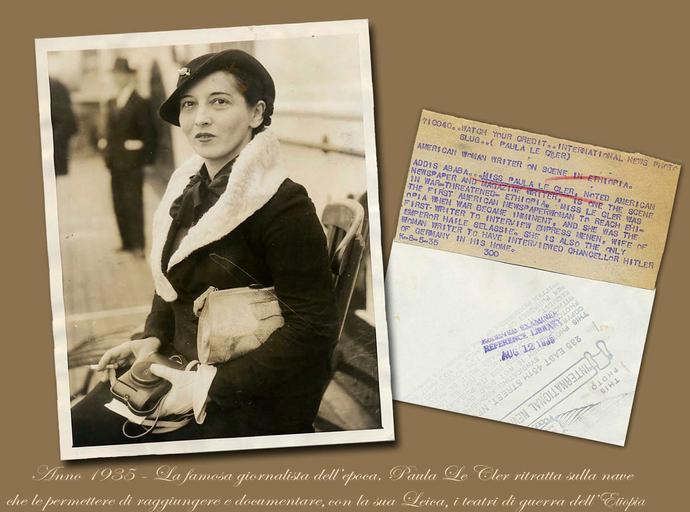 710040..WATCH YOUR CREDIT..INTERNATIONAL NEWS PHOTO
SLUG..( PAULA LE CLER)
AMERICAN WOMAN WRITER ON SCENE IN ETHIOPIA.
ADDIS ABABA...MISS PAULA LE CLER, NOTED AMERICAN
NEWSPAPER AND MAGAZINE WRITER, IS ONE THE SCENE
IN WAR-THREATENED- ETHIOPIA. MISS LE CLER WAS
THE FIRST AMERICAN NEWSPAPERWOMAN TO REACH EHI-
OPIA WHEN WAR BECAME IMMINENT, AND SHE WAS THE
FIRST WRITER TO INTERVIEW EMPRESS MENEN, WIFE OF
EMPEROR HAILE SELASSIE. SHE IS ALSO THE ONLY
WOMAN WRITER TO HAVE INTERVIEWED CHANCELLOR HITLER
OF GERMANY IN HIS HOME.
K-8-8-35 300
EXAMINER
REFERENCE LIBRARY
AUG 12 1935
THIS PHOTO
INTERNATIONAL NEW
235 EAST 45TH STREET NE
THIS
Anno 1935 - La famosa giornalista dell'epoca, Paula Le Cler ritratta sulla nave
che le permettere di raggiungere e documentare, con la sua Leica, i teatri di guerra dell'Etiopia